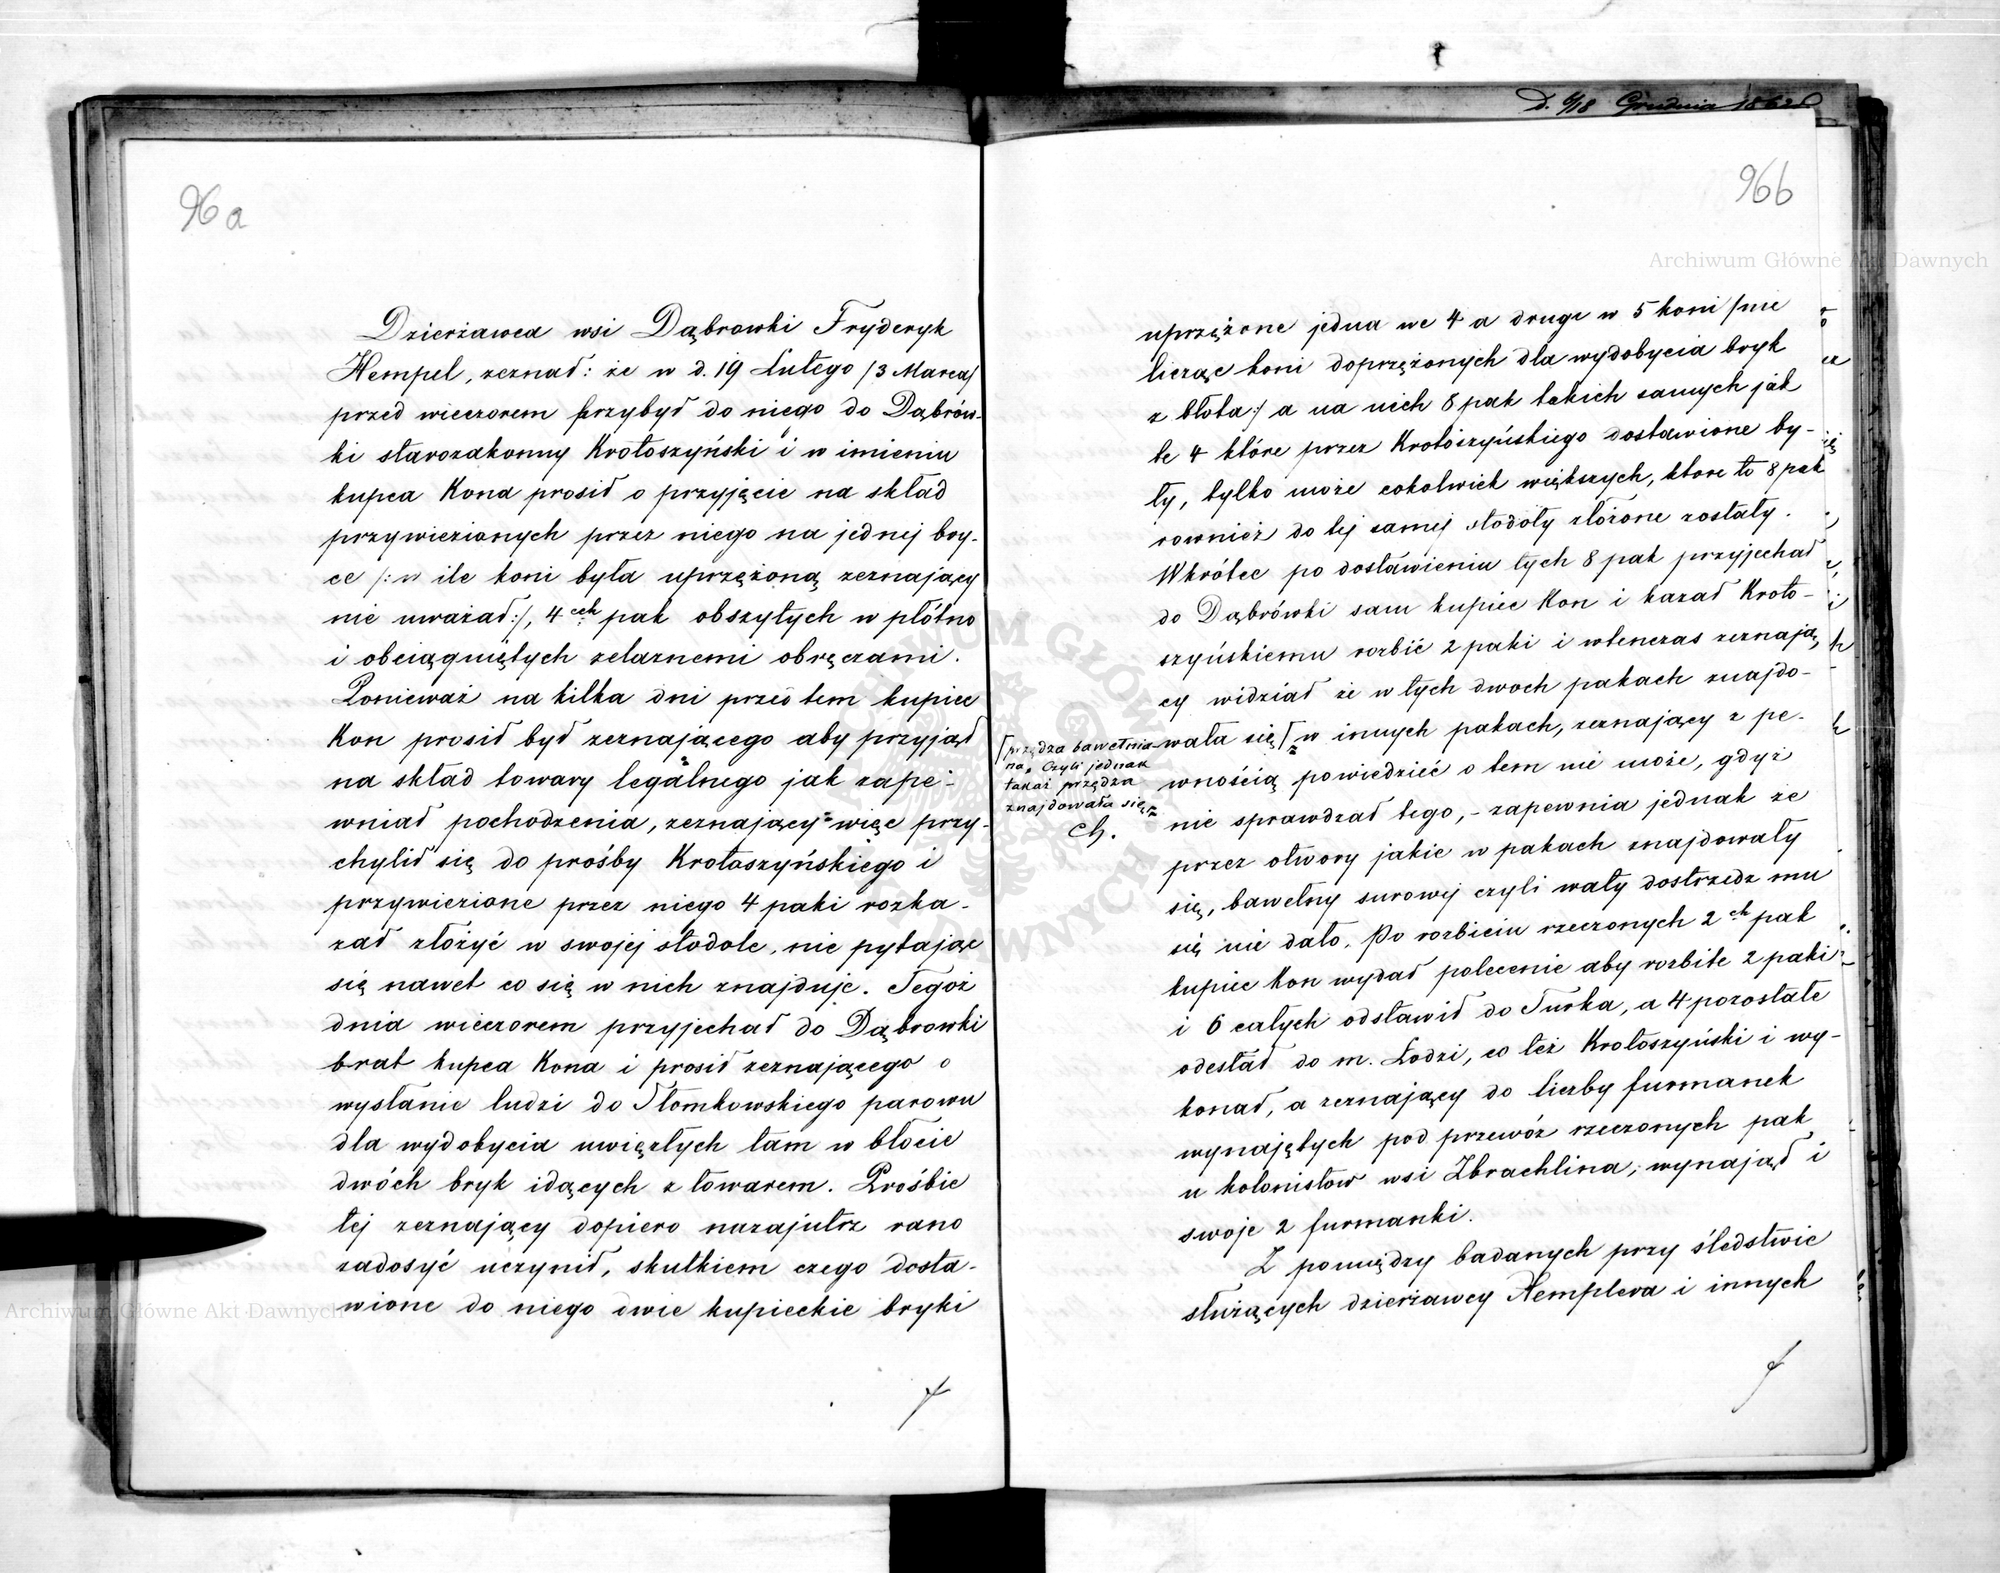 96 a
Dzierżawca wsi Dąbrowki Fryderyk
Hempel, zeznał: że w d. 19 Lutego /3 Marca/
przed wieczorem przybył do niego do Dąbrów-
ki starozakonny Krotoszyński i w imieniu
kupca Kona prosił o przyjęcie na skład
przywiezionych przez niego na jednej bry-
ce /: w ile koni była uprzężoną zeznający
nie uważał :/, 4ech pak obszytych w płótno
i obciągniętych żelaznemi obręczami.
Ponieważ na kilka dni przed tem kupiec
Kon prosił był zeznającego aby przyjął
na skład towary legalnego jak zape-
wniał pochodzenia, zeznający więc przy-
chylił się do prośby Krotoszyńskiego i
przywiezione przez niego 4 paki rozka-
zał złożyć w swojej stodole, nie pytając
się nawet co się w nich znajduje. Tegoż
dnia wieczorem przyjechał do Dąbrowki
brat kupca Kona i prosił zeznającego o
wysłanie ludzi do Słomkowskiego parowu
dla wydobycia uwięzłych tam w błocie
dwóch bryk idących z towarem. Prośbie
tej zeznający dopiero nazajutrz rano
zadosyć uczynił, skutkiem czego dosta-
wione do niego dwie kupieckie bryki
D. 6/18 Grudnia 1862
96b
uprzężone jedna we 4 a druga w 5 koni /nie
licząc koni doprzężonych dla wydobycia bryk
z błota:/ a na nich 8 pak takich samych jak
te 4 które przez Krotoszyńskiego dostawione by-
ły, tylko może cokolwiek większych, ktore to 8 pak
rownież do tej samej stodoły złożone zostały.
Wkrótce po dostawieniu tych 8 pak przyjechał
do Dąbrówki sam kupiec Kon i kazał Kroto-
szyńskiemu rozbić 2 paki i wtenczas zeznają-
cy widział że w tych dwoch pakach znajdo-
wała się ⌈ w innych pakach, zeznający z pe-
⌈przędza bawełnia-
na, Czyli jednak
takaż przędza
znajdowała się
Ch.
wnością powiedzieć o tem nie może, gdyż
nie sprawdzał tego, - zapewnia jednak że
przez otwory jakie w pakach znajdowały
się, bawełny surowej czyli waty dostrzedz mu
się nie dało. Po rozbiciu rzeczonych 2ch pak
kupiec Kon wydał polecenie aby rozbite 2 paki
i 6 całych odstawił do Turka, a 4 pozostałe
odesłał do m. Łodzi, co też Krotoszyński i wy-
konał, a zeznający do liczby furmanek
wynajętych pod przewóz rzeczonych pak
u kolonistow wsi Zbrachlina, wynajął i
swoje 2 furmanki.
Z pomiędzy badanych przy śledstwie
służących dzierżawcy Hemplera i innych
Archiwum Główne Akt Dawnych
Archiwum Główne Akt Dawnych